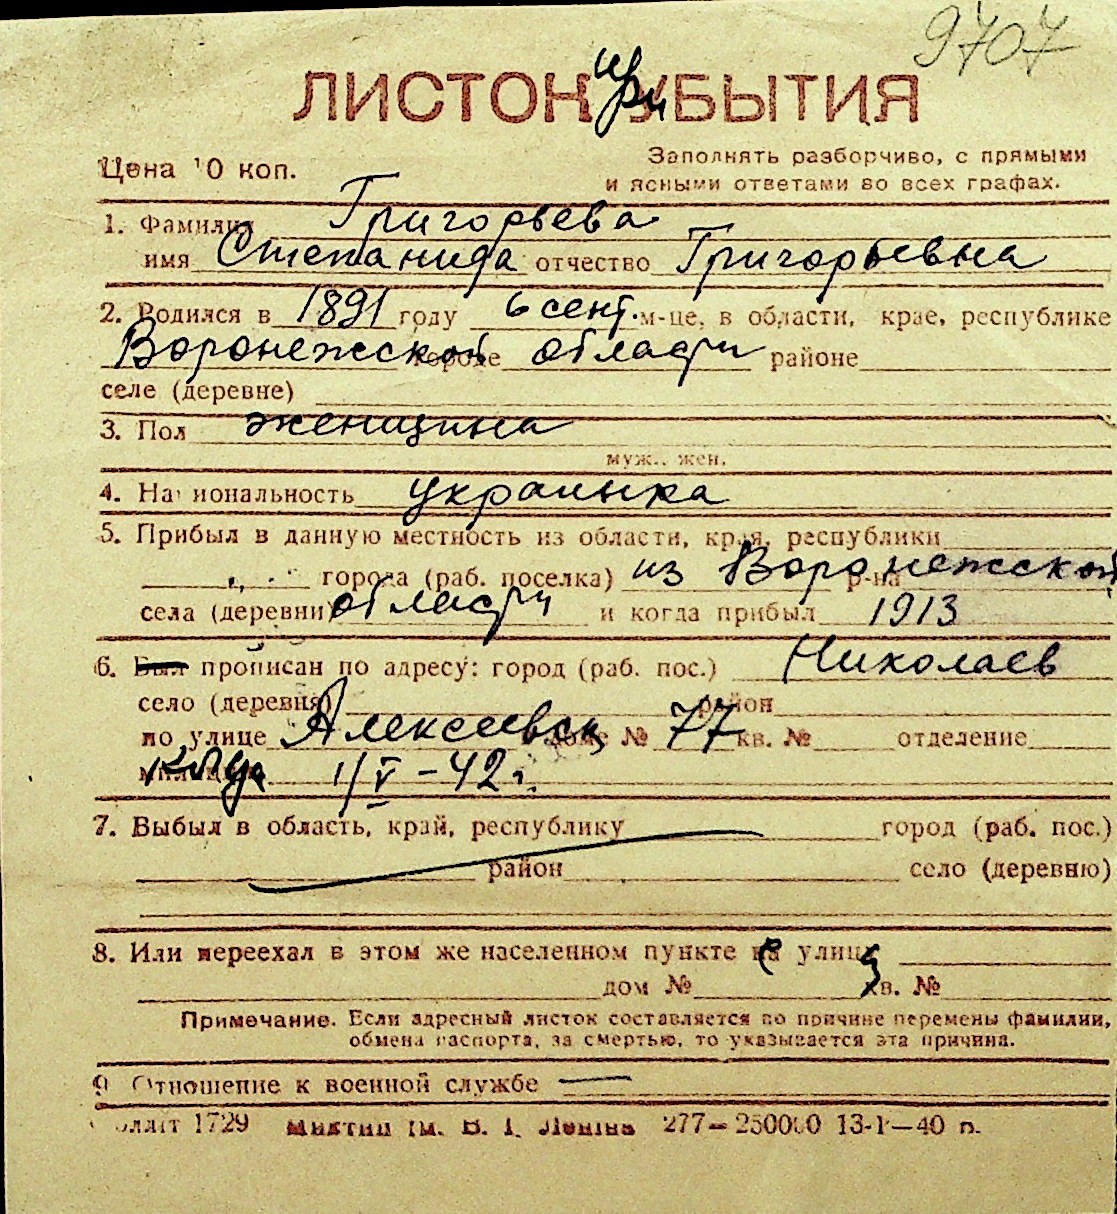 9707
ЛИСТОК при БЫТИЯ
Цена 10 коп.
Заполнять разборчиво, с прямыми
и ясными ответами во всех графах.
1. Фамилия Григорьева
имя Степанида отчество Григорьевна
2. Родился в 1891 году 6 сент. м-це, в области, крае, республике
Воронежской городе области районе
селе (деревне)
3. Пол женщина
муж., жен.
4. Национальность украинка
5. Прибыл в данную местность из области, края, республики
города (раб. поселка) из Воронежской р-на
села (деревни) области и когда прибыл 1913
6. Был прописан по адресу: город (раб. пос.) Николаев
село (деревня) район
по улице Алексеевск доме № 77 кв. № отделение
когда 1/V-42 г.
7. Выбыл в область, край, республику город (раб. пос.)
район село (деревню)
8. Или переехал в этом же населенном пункте с улицы
дом № кв. №
Примечание. Если адресный листок составляется по причине перемены фамилии,
обмена паспорта, за смертью, то указывается эта причина.
9. Отношение к военной службе —
1729 им. В. І. Леніна 277—250000 13-I—40 р.